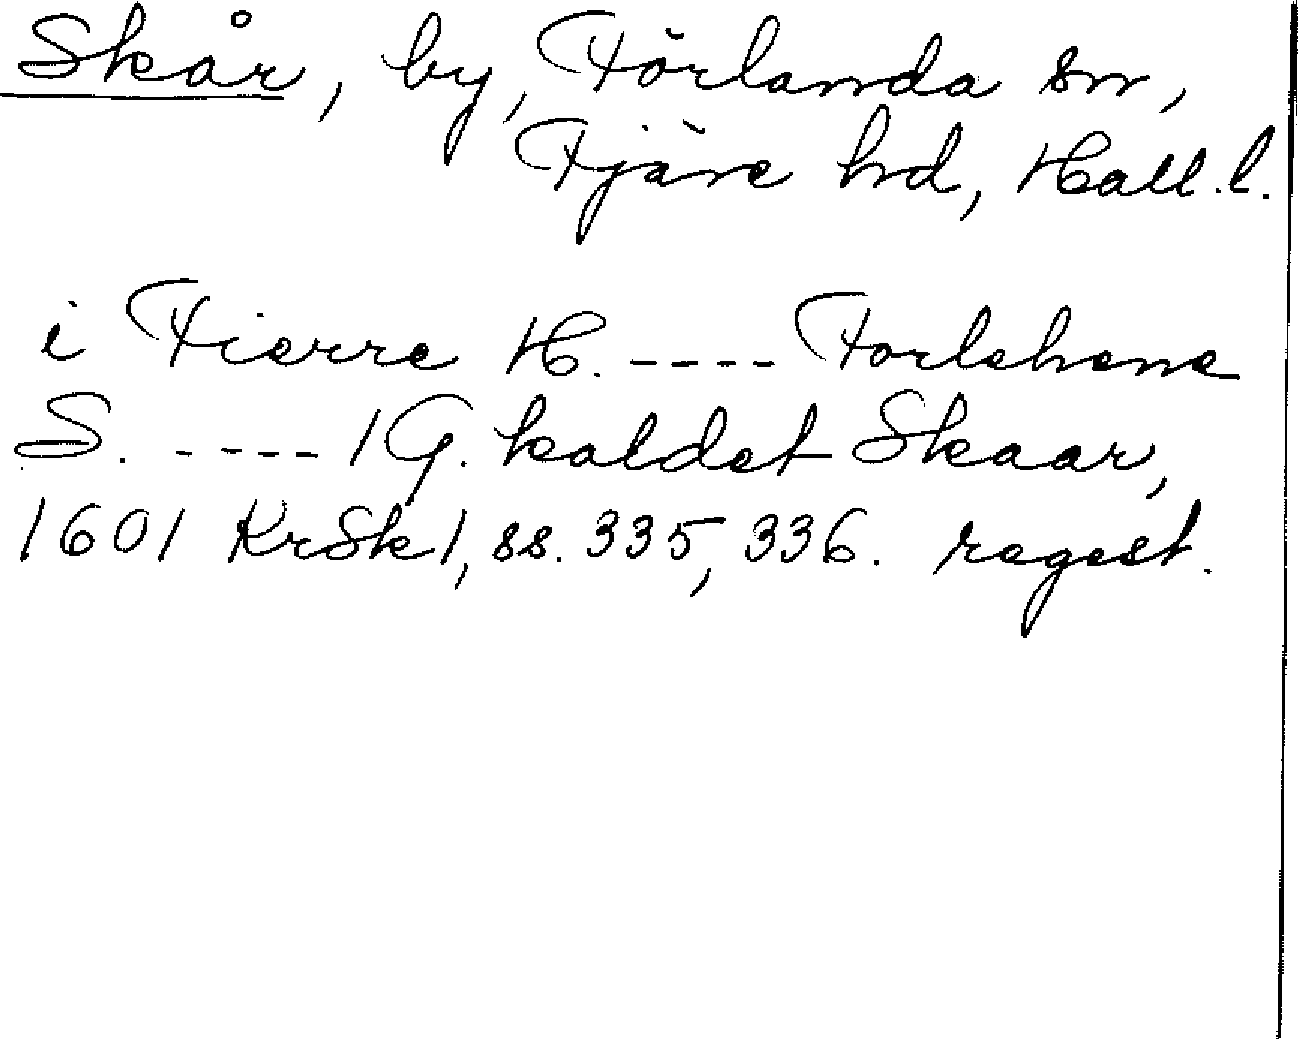 Skår, by, Förlanda sn,
Fjäre hd, Hall.l.
i Fierre H. ---- Forlehene
S. ---- 1 G. kaldet Skaar,
1601 KrSk1, ss. 335, 336. regest.